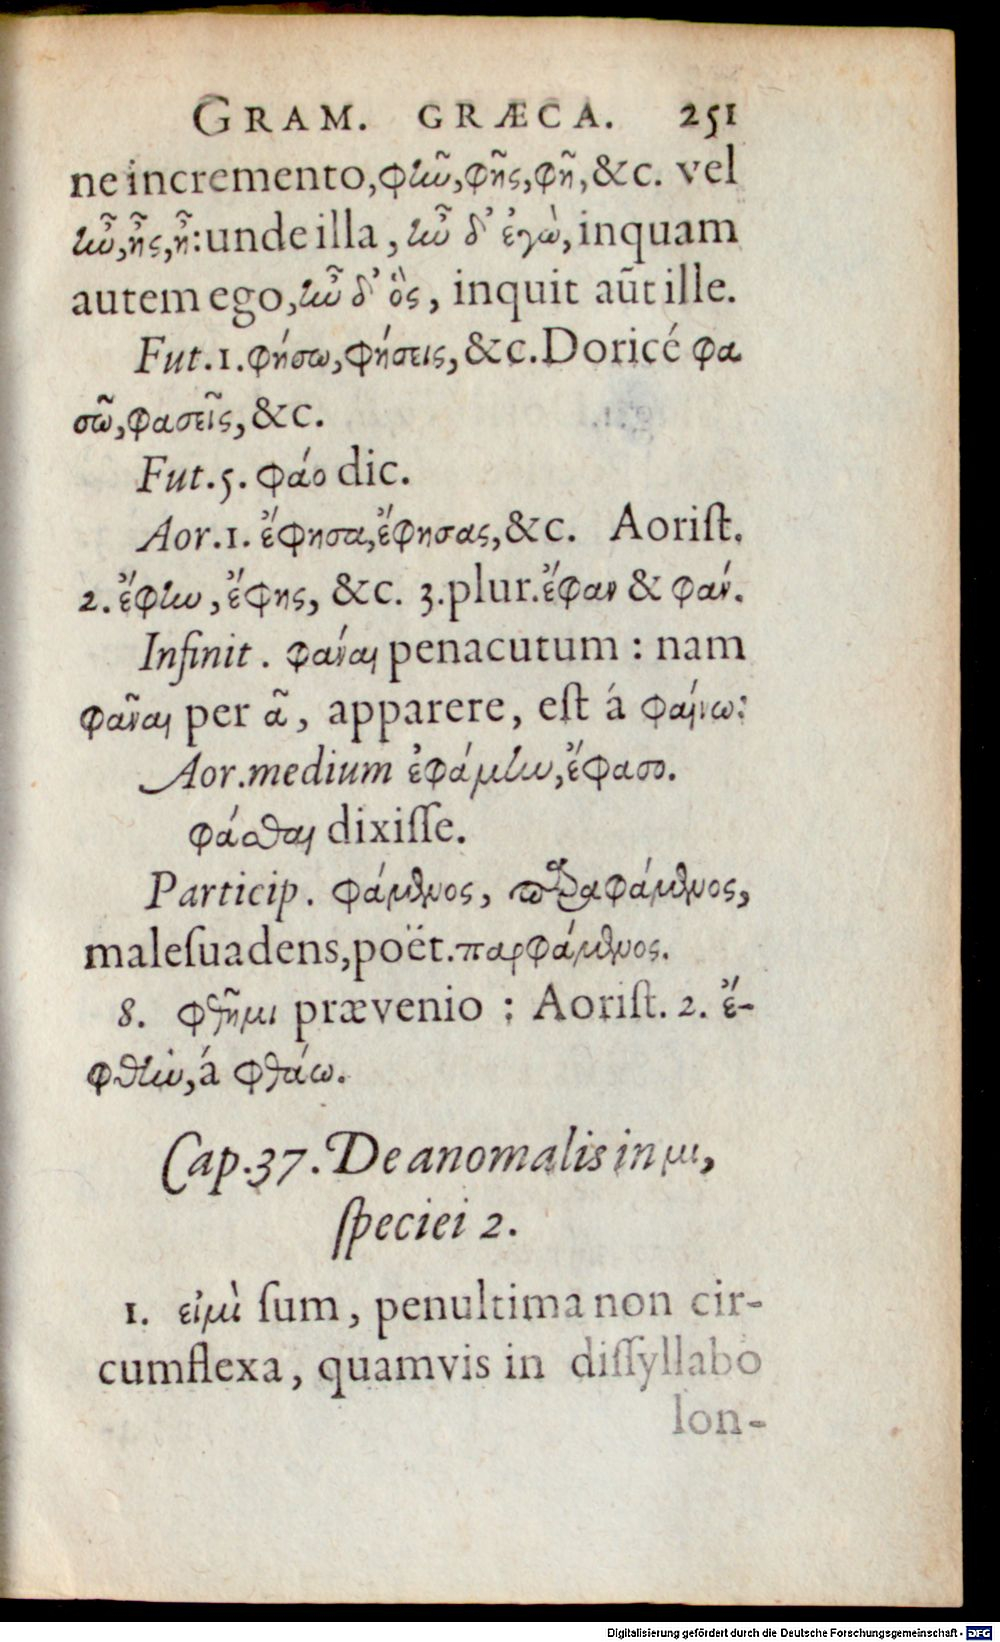 GRAM. GRÆCA. 251
ne incremento, φῆν, φῆς, φῆ, &c. vel
ἦν, ἦς, ἦ: unde illa, ἦν δ' ἐγὼ, inquam
autem ego, ἦν δ' ὃς, inquit aũt ille.
Fut. 1. φήσω, φήσεις, &c. Doricé φα
σῶ, φασεῖς, &c.
Fut. 5. φάο dic.
Aor. 1. ἔφησα, ἔφησας, &c. Aoriſt.
2. ἔφην, ἔφης, &c. 3. plur. ἔφαν & φάν.
Infinit. φάναι penacutum : nam
φᾶναι per ᾶ, apparere, eſt á φαίνω:
Aor. medium ἐφάμην, ἔφασο.
φάσθαι dixiſſe.
Particip. φάμενος, παραφάμενος,
maleſuadens, poët. παρφάμενος.
8. φθῆμι prævenio : Aoriſt. 2. ἔ-
φθην, á φθάω.
Cap. 37. De anomalis in μι,
ſpeciei 2.
1. εἰμὶ ſum, penultima non cir-
cumflexa, quamvis in diſſyllabo
lon-
Digitalisierung gefördert durch die Deutsche Forschungsgemeinschaft - DFG